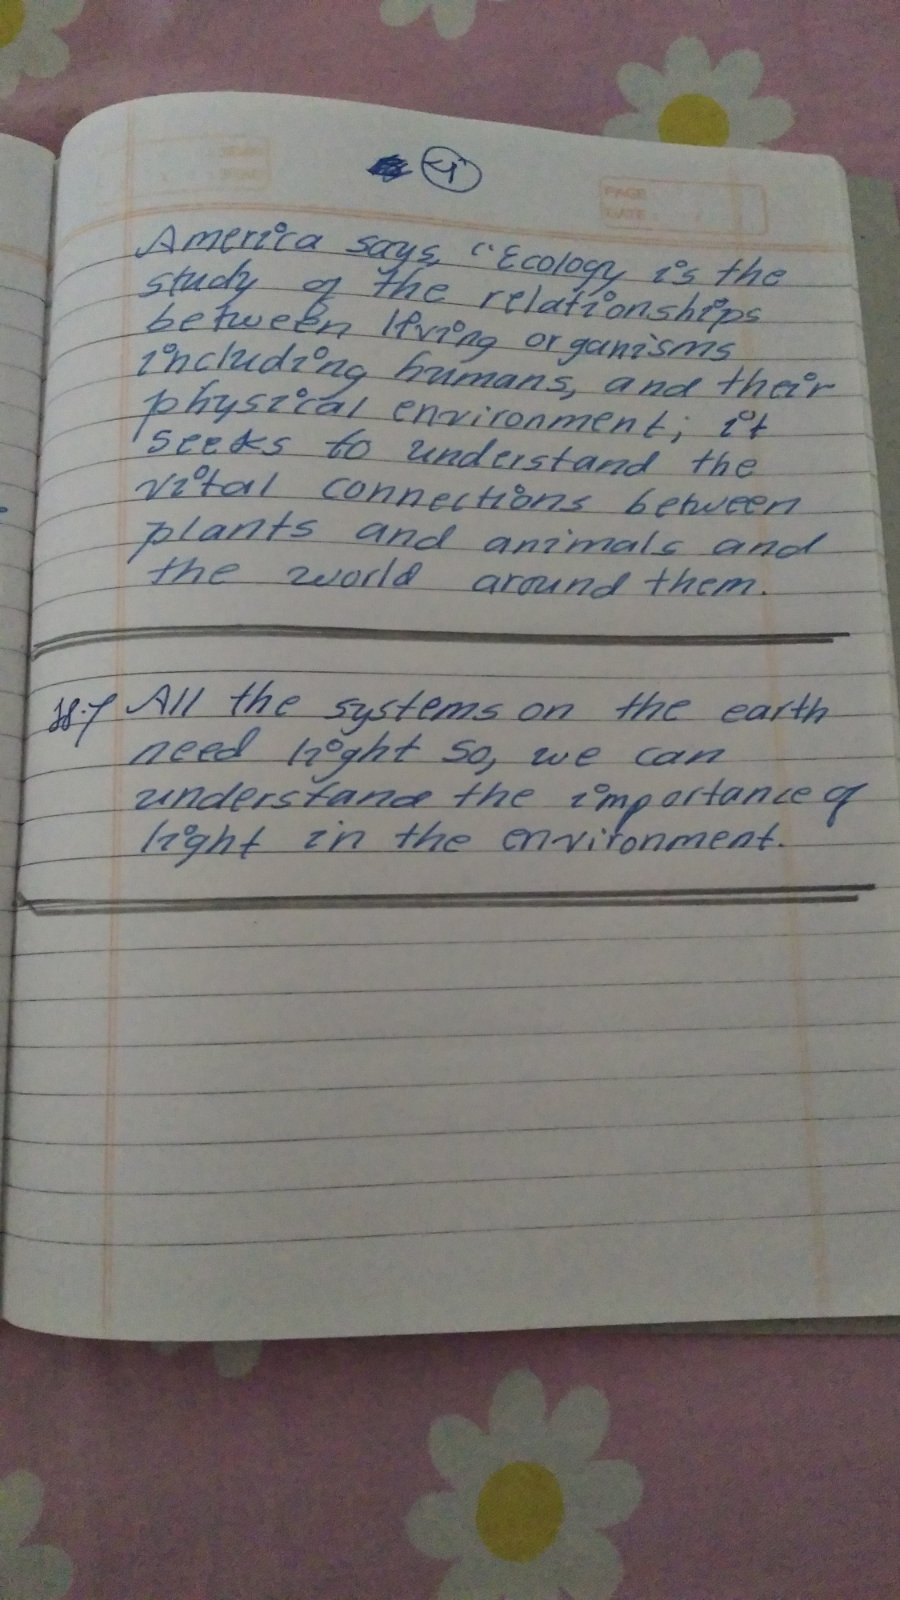 PAGE
DATE
America says, "Ecology is the
study of the relationships
between living organisms
including humans, and their
physical environment; it
seeks to understand the
vital connections between
plants and animals and
the world around them.
All the systems on the earth
need light so, we can
understand the importance of
light in the environment.